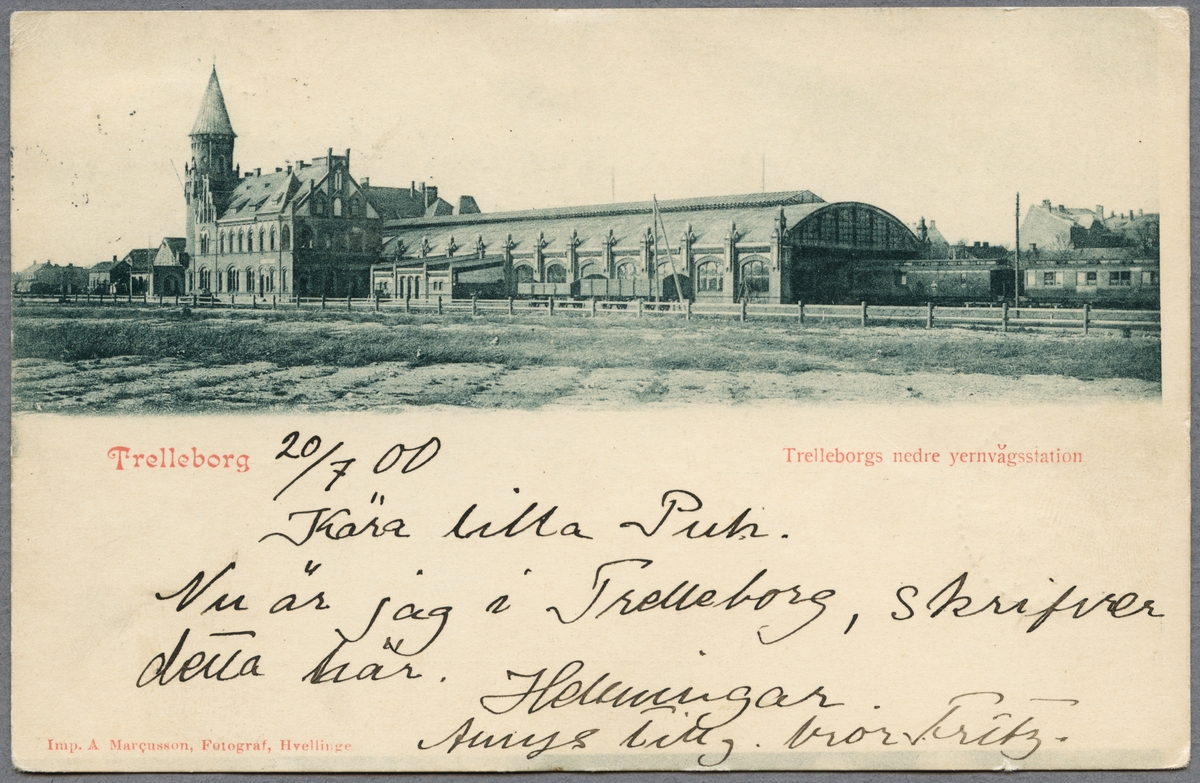 Trelleborg 20/7 00 Trelleborgs nedre yernvågsstation
Kära lilla Puh.
Nu är jag i Trelleborg, skrifver
detta här.
Helsningar.
tillg. bror Fritz.
Imp. A Marçusson, Fotograf, Hvellinge